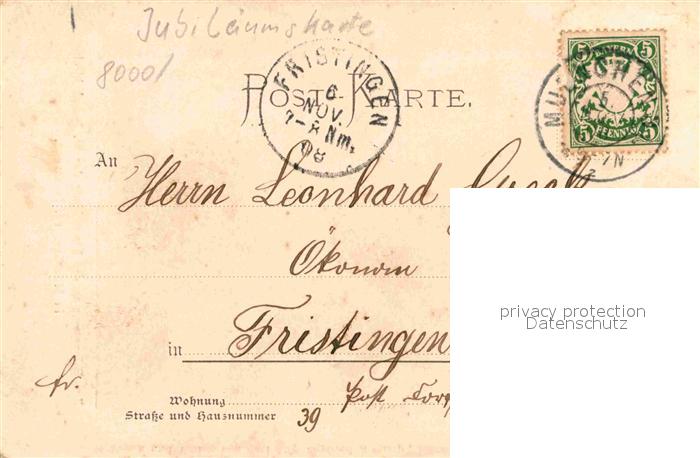 Jubiläumskarte
80001
POST-KARTE.
FRISTINGEN
6
NOV.
7-8 Nm.
08
5 BAYERN 5
5 PFENNIG 5
MUENCHEN
5
7N
2
An
Herrn Leonhard
Ökonom
in Fristingen
fr.
Wohnung Post
Straße und Hausnummer 39
privacy protection
Datenschutz